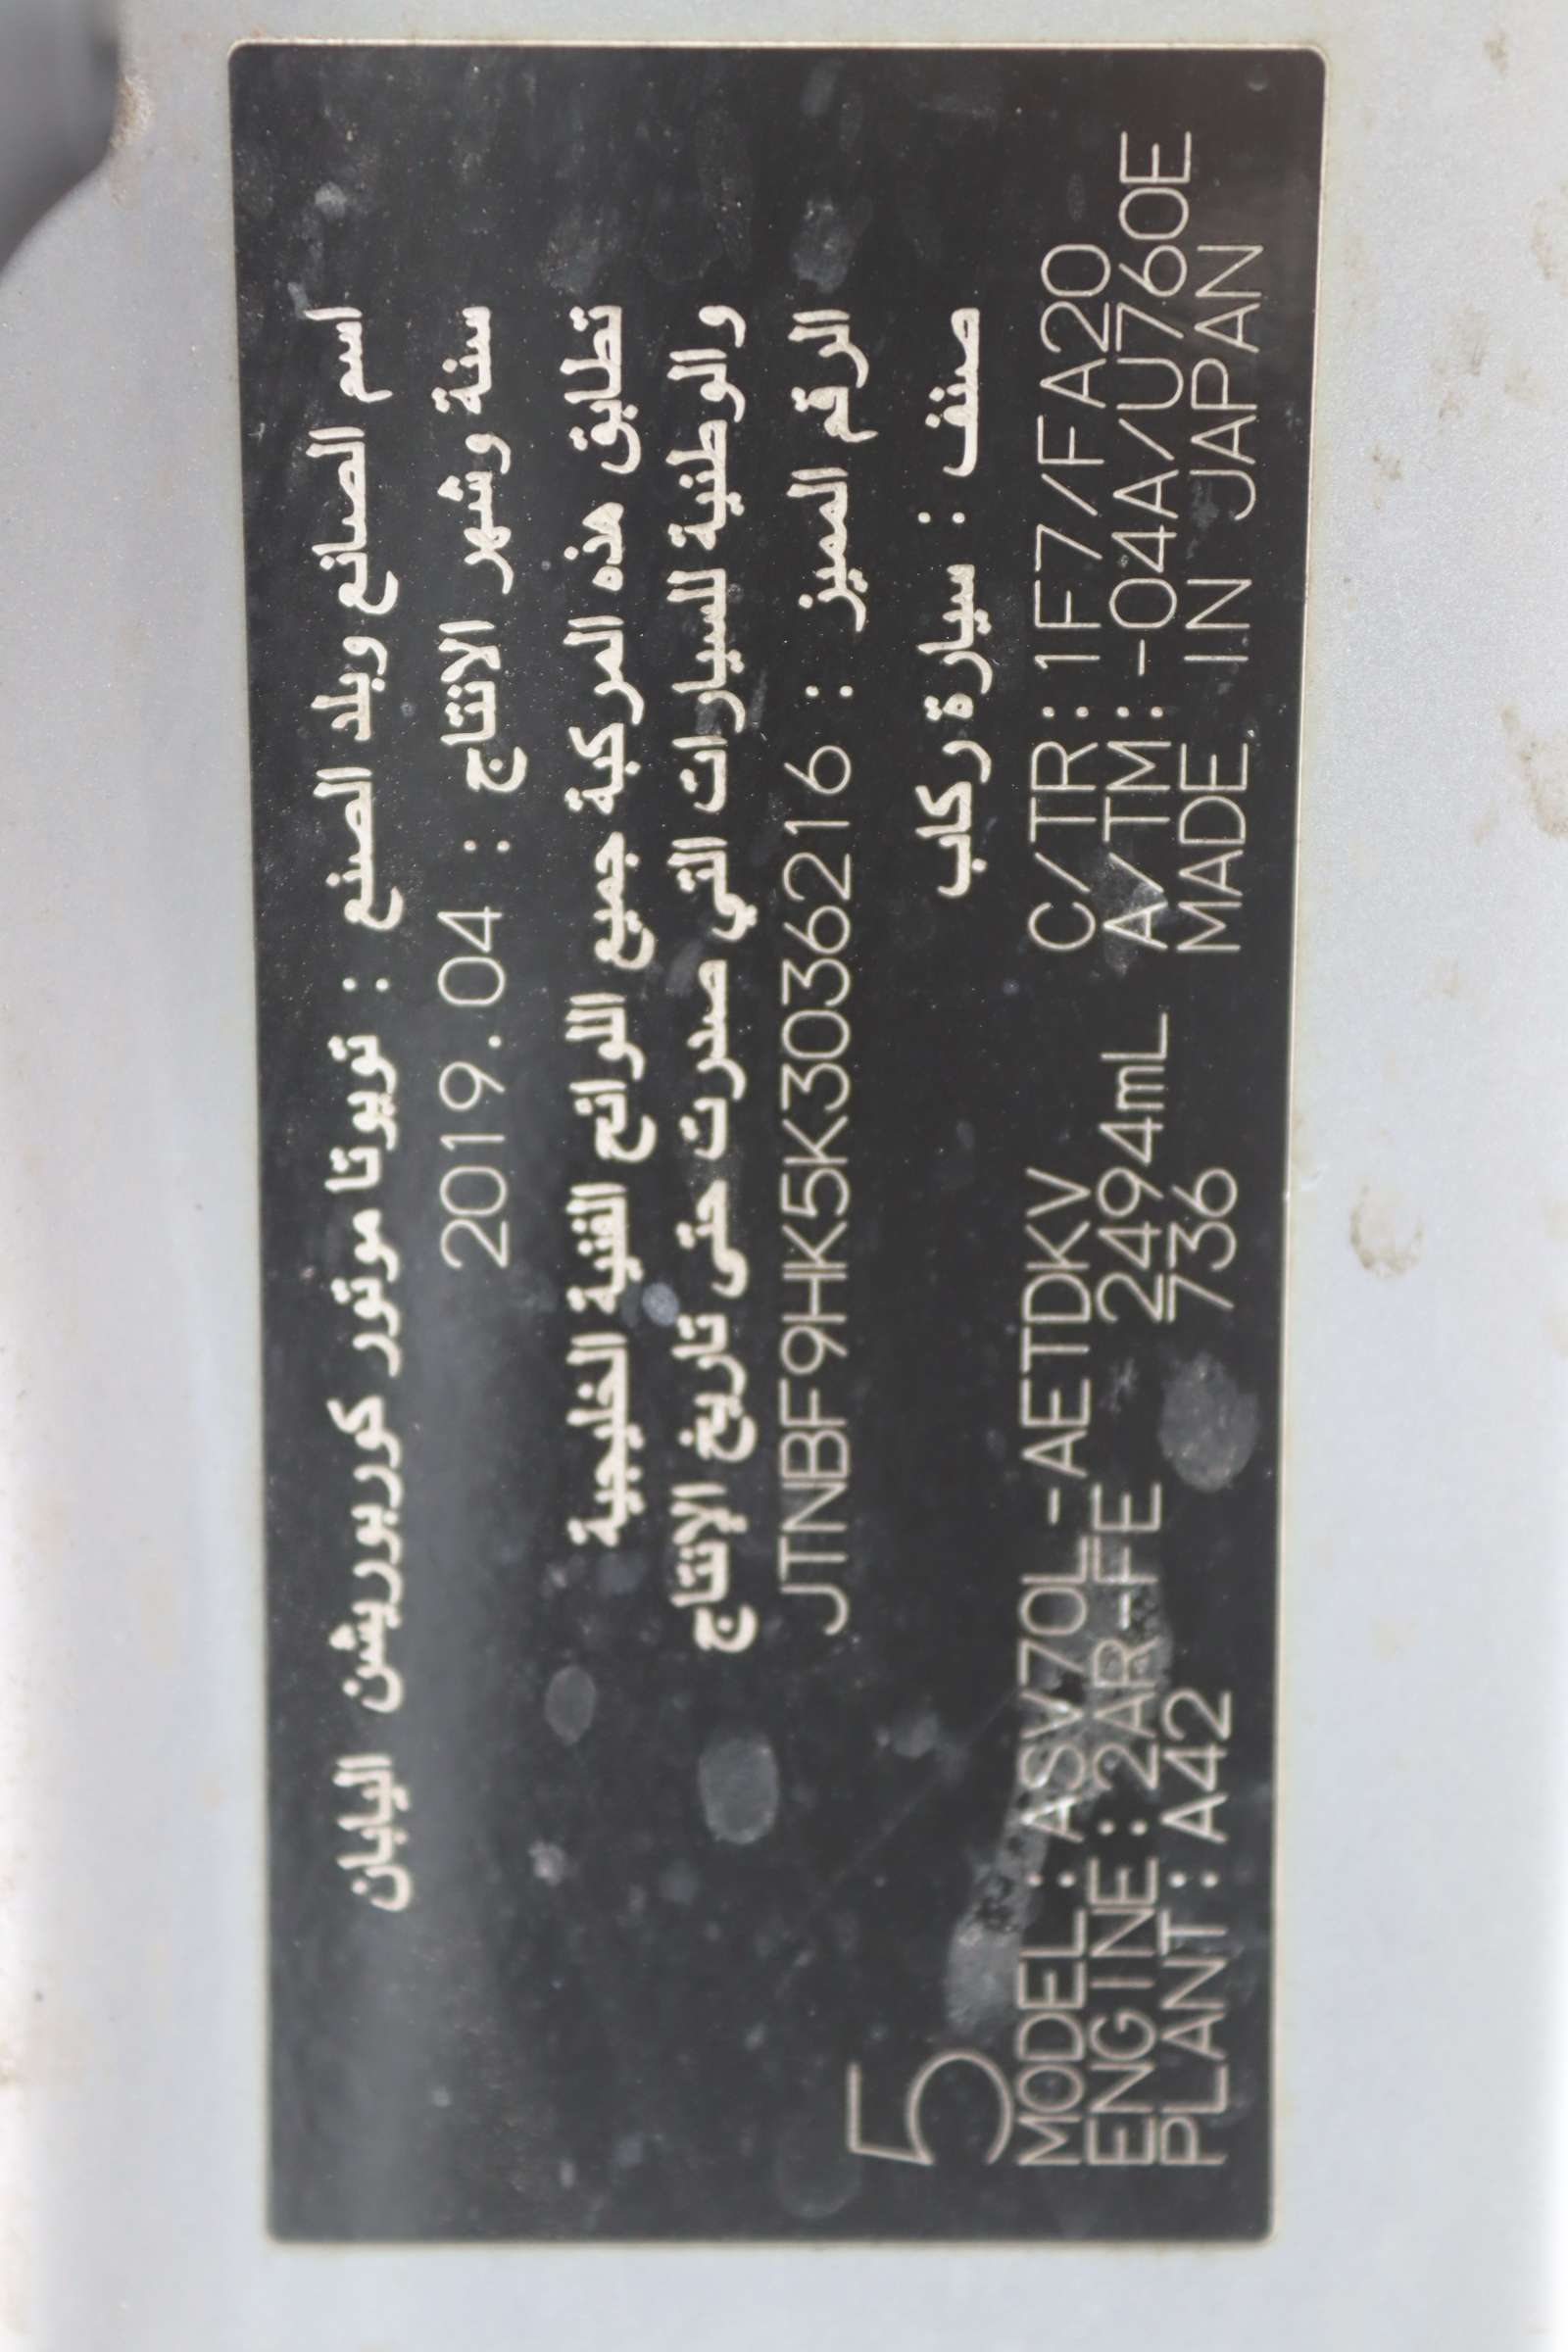 اسم الصانع وبلد الصنع : تويوتا موتور كوربوريشن اليابان
سنة وشهر الانتاج : 2019.04
تطابق هذه المركبة جميع اللوائح الفنية الخليجية
والوطنية للسيارات التي صدرت حتى تاريخ الانتاج
الرقم المميز : JTNBF9HK5K3036216
صنف : سيارة ركاب
5
MODEL:ASV70L-AETDKV C/TR:1F7/FA20
ENGINE:2AR-FE 2494mL A/TM:-04A/U760E
PLANT:A42 736 MADE IN JAPAN